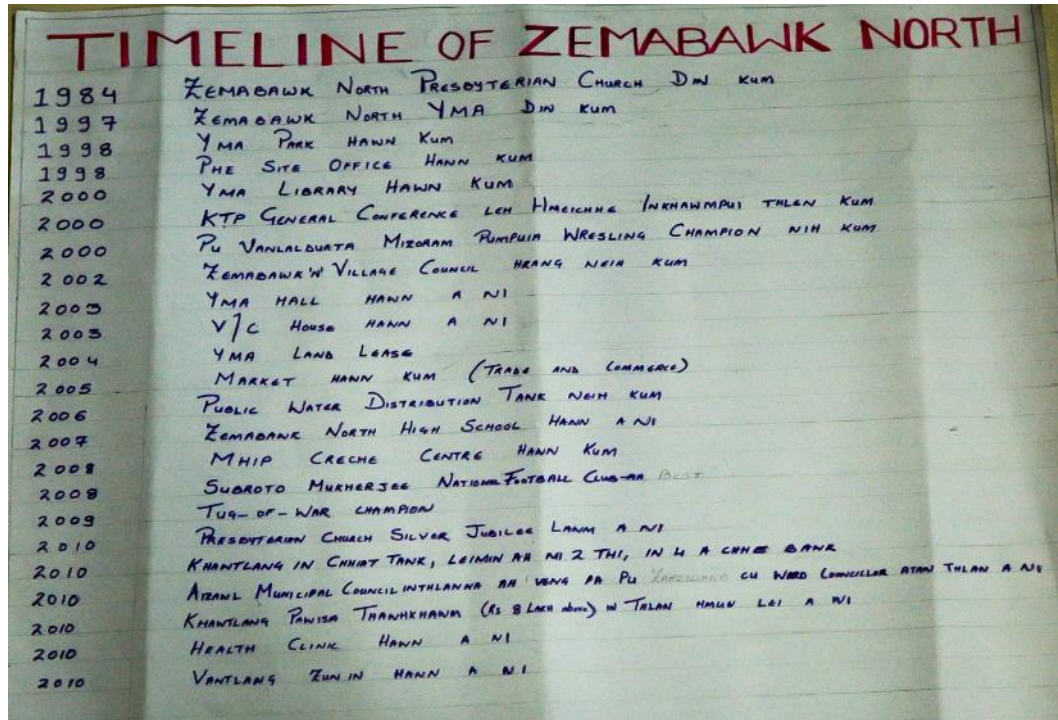 TIMELINE OF ZEMABAWK NORTH
1984 ZEMABAWK NORTH PRESBYTERIAN CHURCH DIN KUM
1997 ZEMABAWK NORTH YMA DIN KUM
1998 YMA PARK HAWN KUM
1998 PHE SITE OFFICE HAWN KUM
2000 YMA LIBRARY HAWN KUM
2000 KTP GENERAL CONFERENCE LEH HMEICHHE INKHAWMPUI THLEN KUM
2000 PU VANLALDUATA MIZORAM PUMPUIA WRESLING CHAMPION NIH KUM
2002 ZEMABAWK 'N' VILLAGE COUNCIL HRANG NEIH KUM
2003 YMA HALL HAWN A NI
2003 V/C HOUSE HAWN A NI
2004 YMA LAND LEASE
2005 MARKET HAWN KUM (TRADE AND COMMERCE)
2006 PUBLIC WATER DISTRIBUTION TANK NEIH KUM
2007 ZEMABAWK NORTH HIGH SCHOOL HAWN A NI
2008 MHIP CRECHE CENTRE HAWN KUM
2008 SUBROTO MUKHERJEE NATIONAL FOOTBALL CLUB-AA BEST
2009 TUG-OF-WAR CHAMPION
2010 PRESBYTERIAN CHURCH SILVER JUBILEE LAWM A NI
2010 KHANTLANG IN CHHIAT TANK, LEIMIN AH MI 2 THI, IN 4 A CHHE BAWK
2010 AIZAWL MUNICIPAL COUNCIL INTHLANNA AH VENG PA PU CU WARD COUNCILLOR ATAN THLAN A NI
2010 KHANTLANG PAWISA THAWHKHAWM (Rs 8 LAKH above) IN TALAN HMUN LEI A NI
2010 HEALTH CLINIC HAWN A NI
2010 VANTLANG ZUN IN HAWN A NI